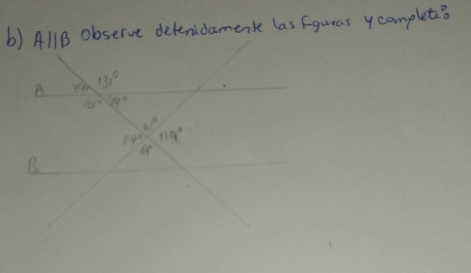 b) A||B Observe detenidamente las figuras y complete:
49° 131°
A
131° 49°
61°
119°
61°
B